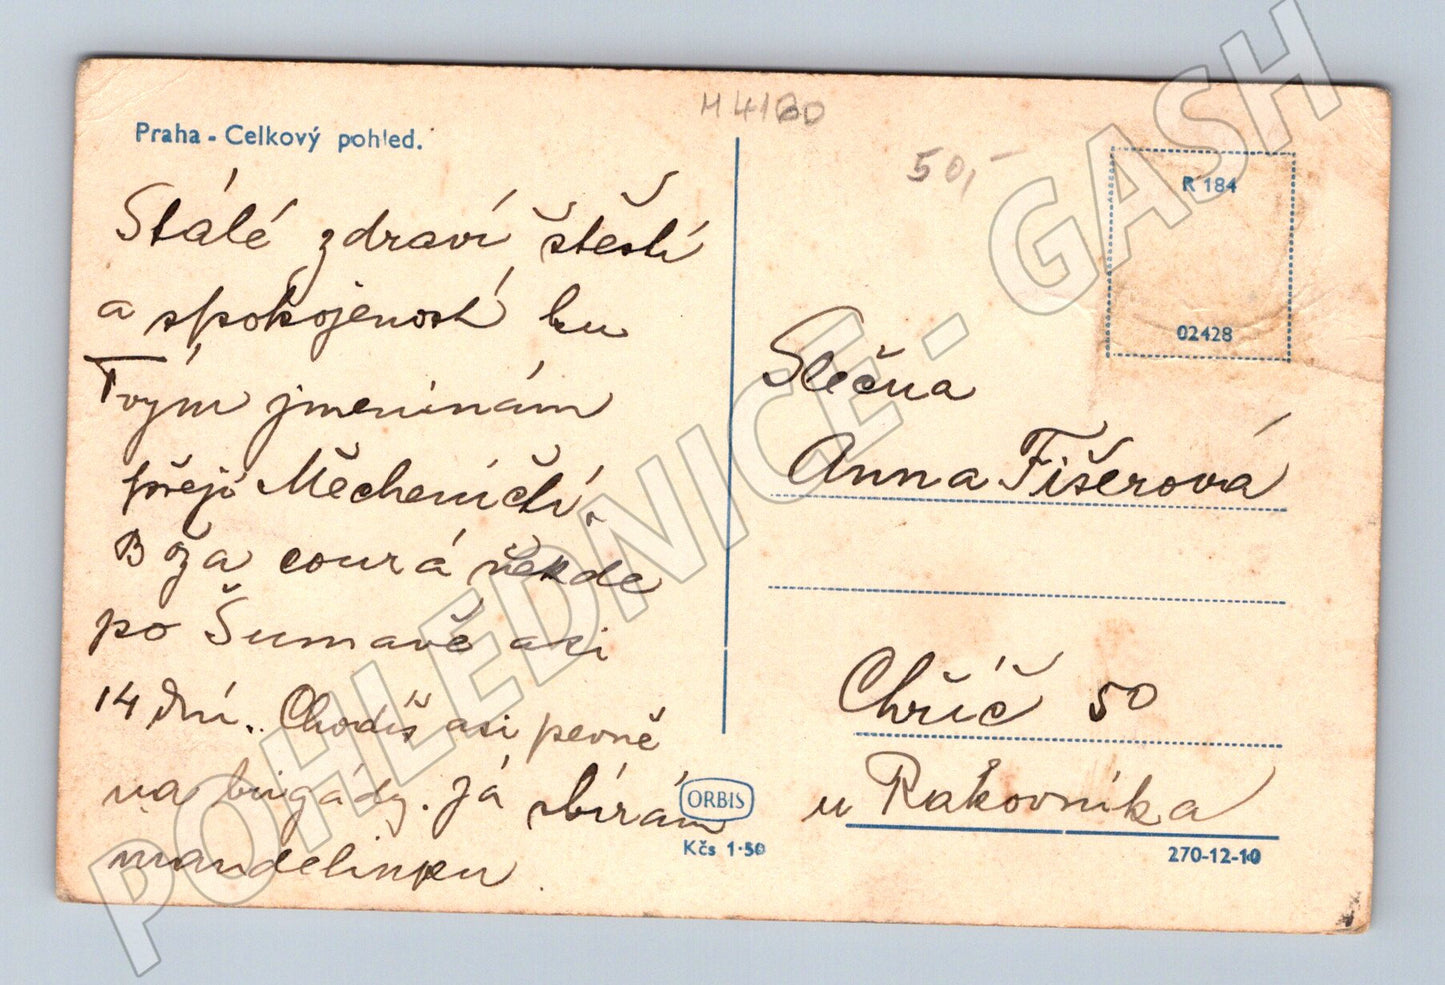 M 4180
Praha - Celkový pohled.
50,-
R 184
02428
Stálé zdraví štěstí
a spokojenost ku
Tvým jmeninám
přejí Měcheničtí.
Boža courá někde
po Šumavě asi
14 dní. Chodíš asi pevně
na brigády. Já sbírám
mandelinku.
Slečna
Anna Fišerová
Chříč 50
u Rakovníka
ORBIS
Kčs 1·50
270-12-10
POHLEDNICE - GASH